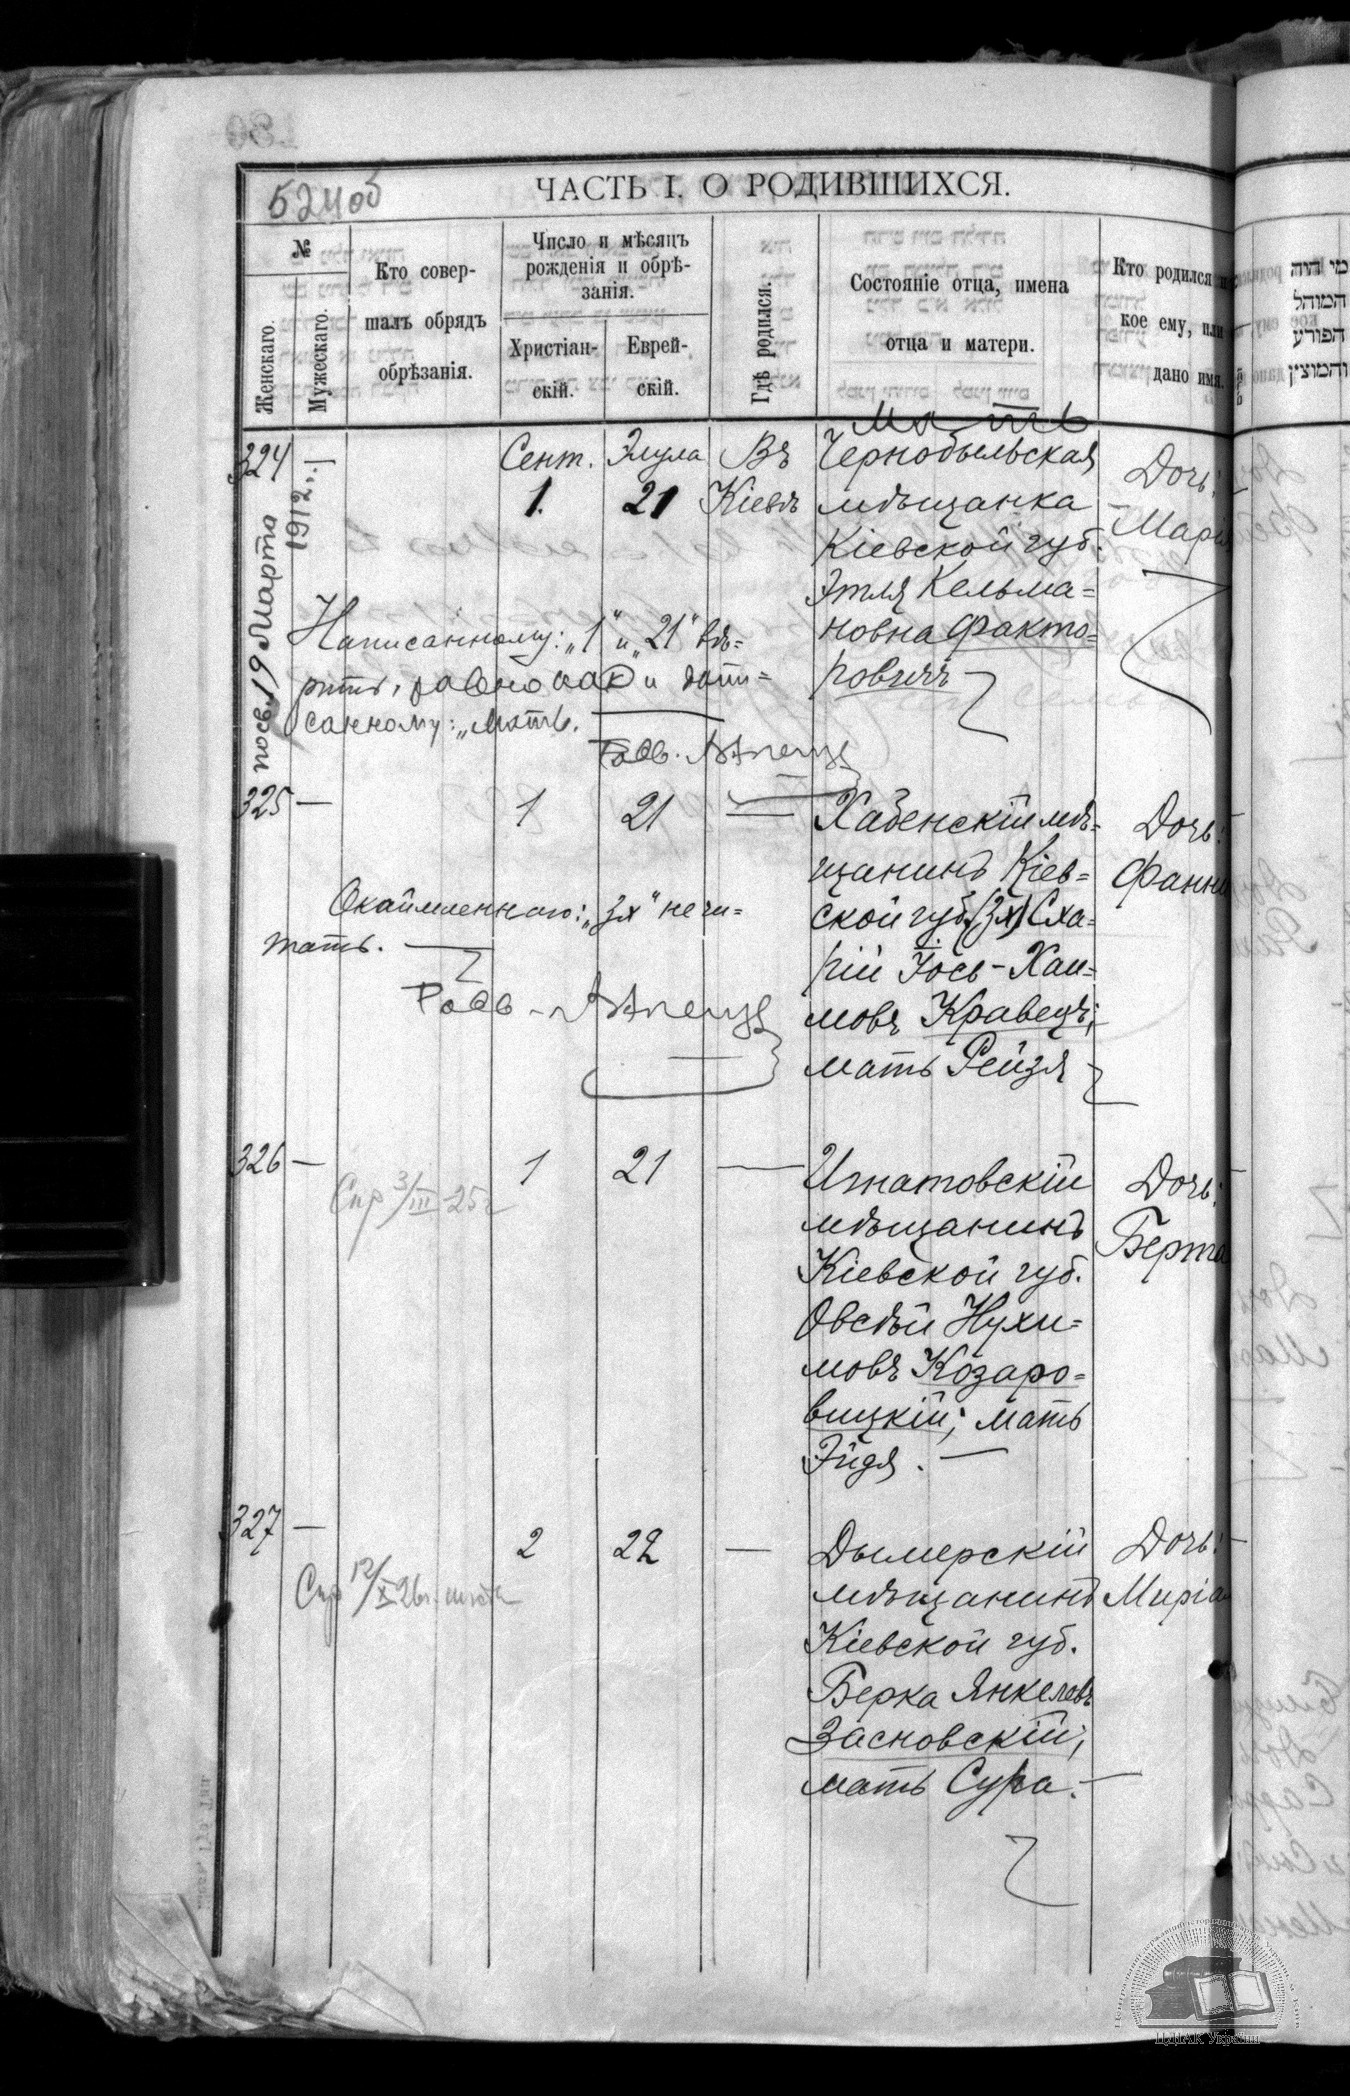 524об
ЧАСТЬ I. О РОДИВШИХСЯ.
№
Женскаго.
Мужескаго.
Кто совер-
шалъ обрядъ
обрѣзанія.
Число и мѣсяцъ
рожденія и обрѣ-
занія.
Христіан-
скій.
Еврей-
скій.
Гдѣ родился.
Состояніе отца, имена
отца и матери.
Кто родился и
кое ему, или
дано имя.
מי היה
המוהל
הפורע
והמוצץ
324 —
19 Марта
1912
Сент.
1.
Элула
21
Въ
Кіевѣ
Мать
Чернобыльская
мѣщанка
Кіевской губ.
Этля Кельма=
новна Факто=
ровичъ
Дочь:
Марія
Написанному: „1" и „21" вѣ=
рить, равно как и допи=
санному: „Мать.
325 —
1
21
—
Хабенскій мѣ=
щанинъ Кіев=
ской губ. (Зх) Сха=
рій Іось-Хаи=
мовъ Кравецъ;
мать Рейзя
Дочь:
Фанни
Окаймленнаго: „Зх" не чи=
тать.
326 —
Спр 3/III 25г
1
21
—
Игнатовскій
мѣщанинъ
Кіевской губ.
Овсѣй Нухи=
мовъ Козаро=
вицкій; мать
Эйдя. —
Дочь:
Берта
327 —
Спр 12/X 26г.
2
22
—
Дымерскій
мѣщанинъ
Кіевской губ.
Берка Янкелевъ
Засновскій;
мать Сура. —
Дочь:
Миріа
ЦДІАК України